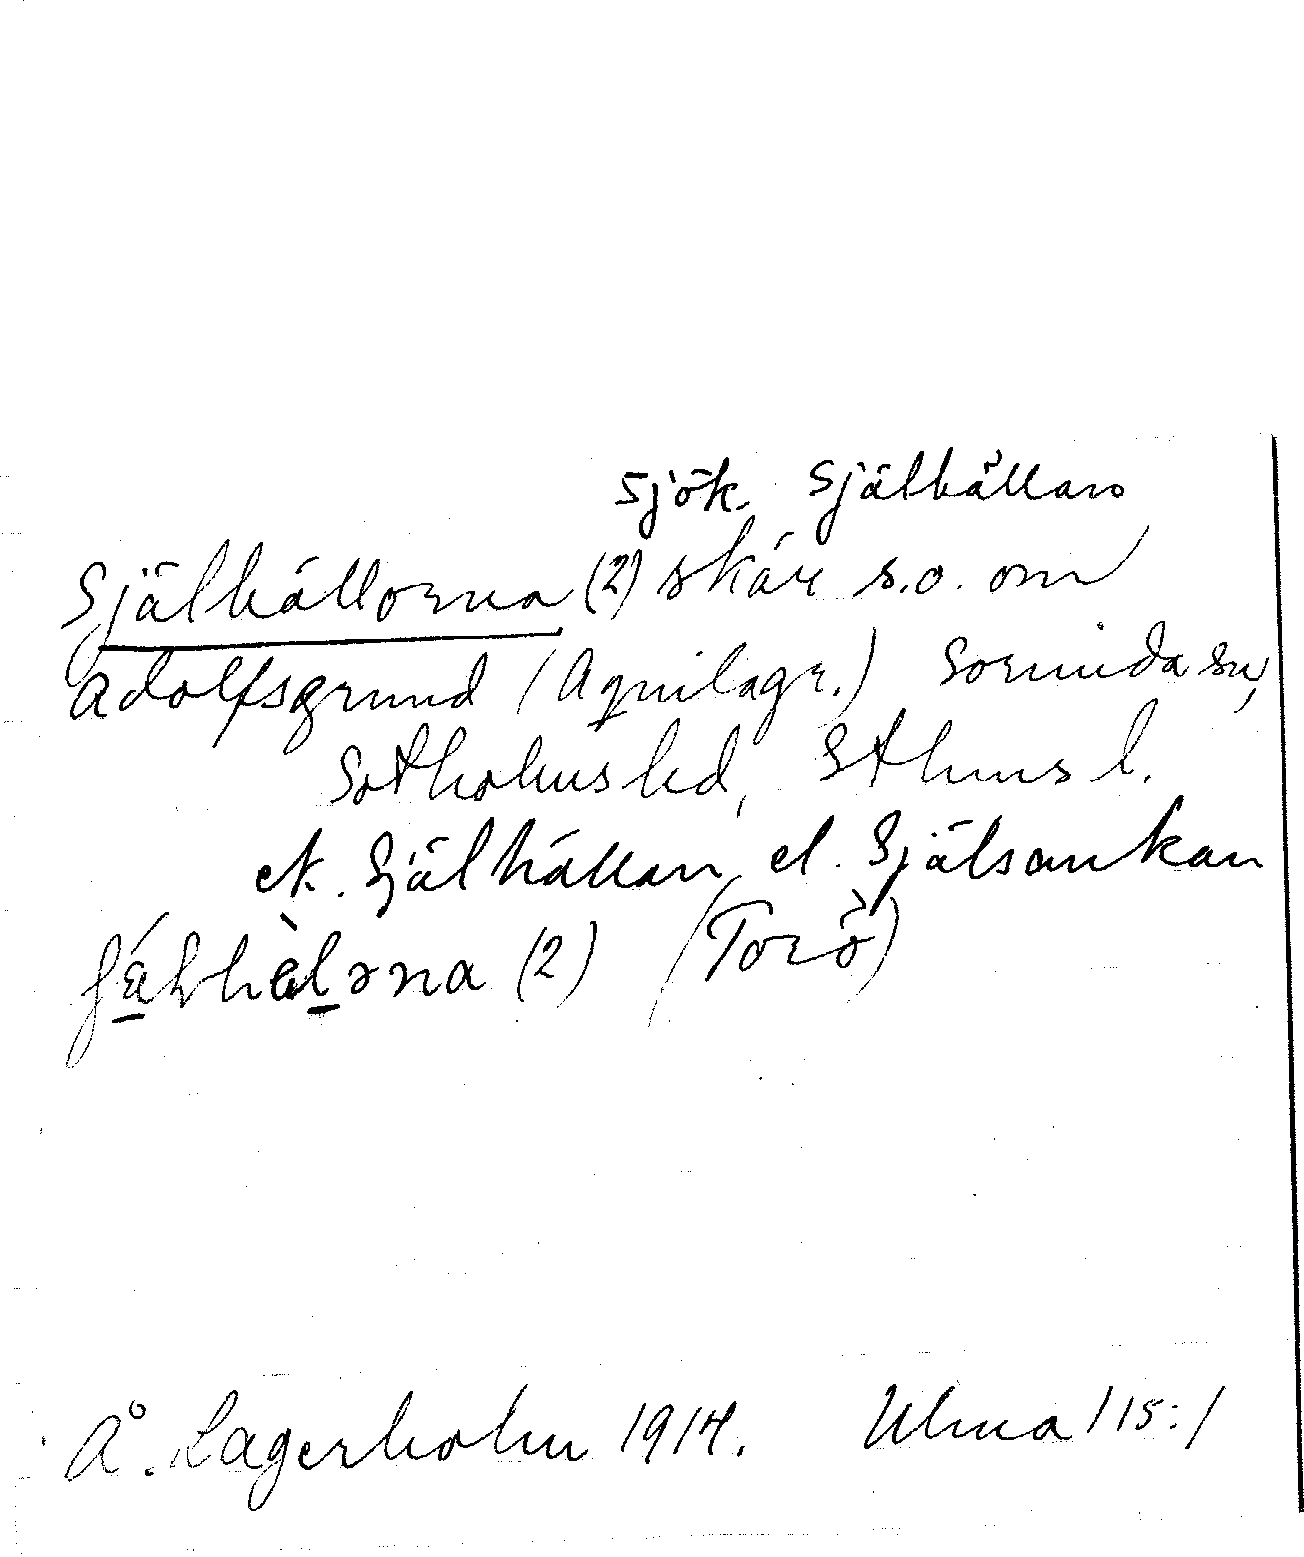 sjök. Själhällan
Själhällorna (2) skär s.o. om
Adolfsgrund (Aquilagr.) Sorunda sn,
Sotholms hd, Sthms l.
ek. Själhällan el. Själsankan
(2) (Torö)
Å. Lagerholm 1914. Ulma 115:1